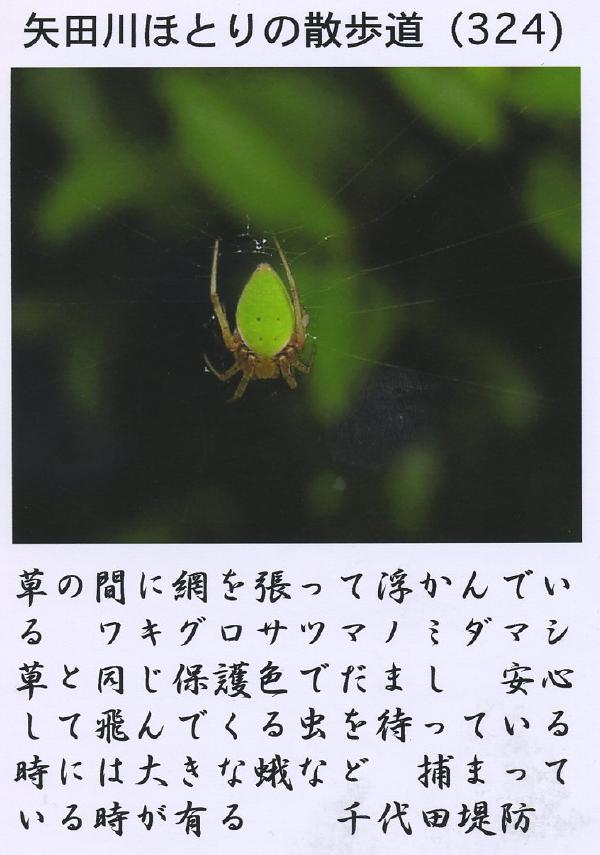 矢田川ほとりの散歩道（324）
草の間に網を張って浮かんでい
る　ワキグロサツマノミダマシ
草と同じ保護色でだまし　安心
して飛んでくる虫を待っている
時には大きな蛾など　捕まって
いる時が有る　　千代田堤防